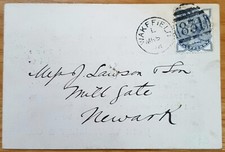 WAKEFIELD
831
Messrs J Lawson & Son
Mill Gate
Newark